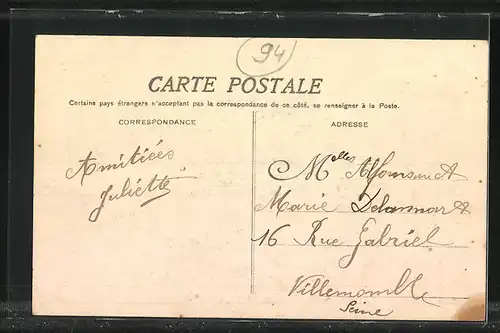 94
CARTE POSTALE
Certains pays étrangers n'acceptant pas la correspondance de ce côté, se renseigner à la Poste.
CORRESPONDANCE
ADRESSE
Amitiées
Juliette
Melles
Marie
16 Rue Gabriel
Villemomble
Seine